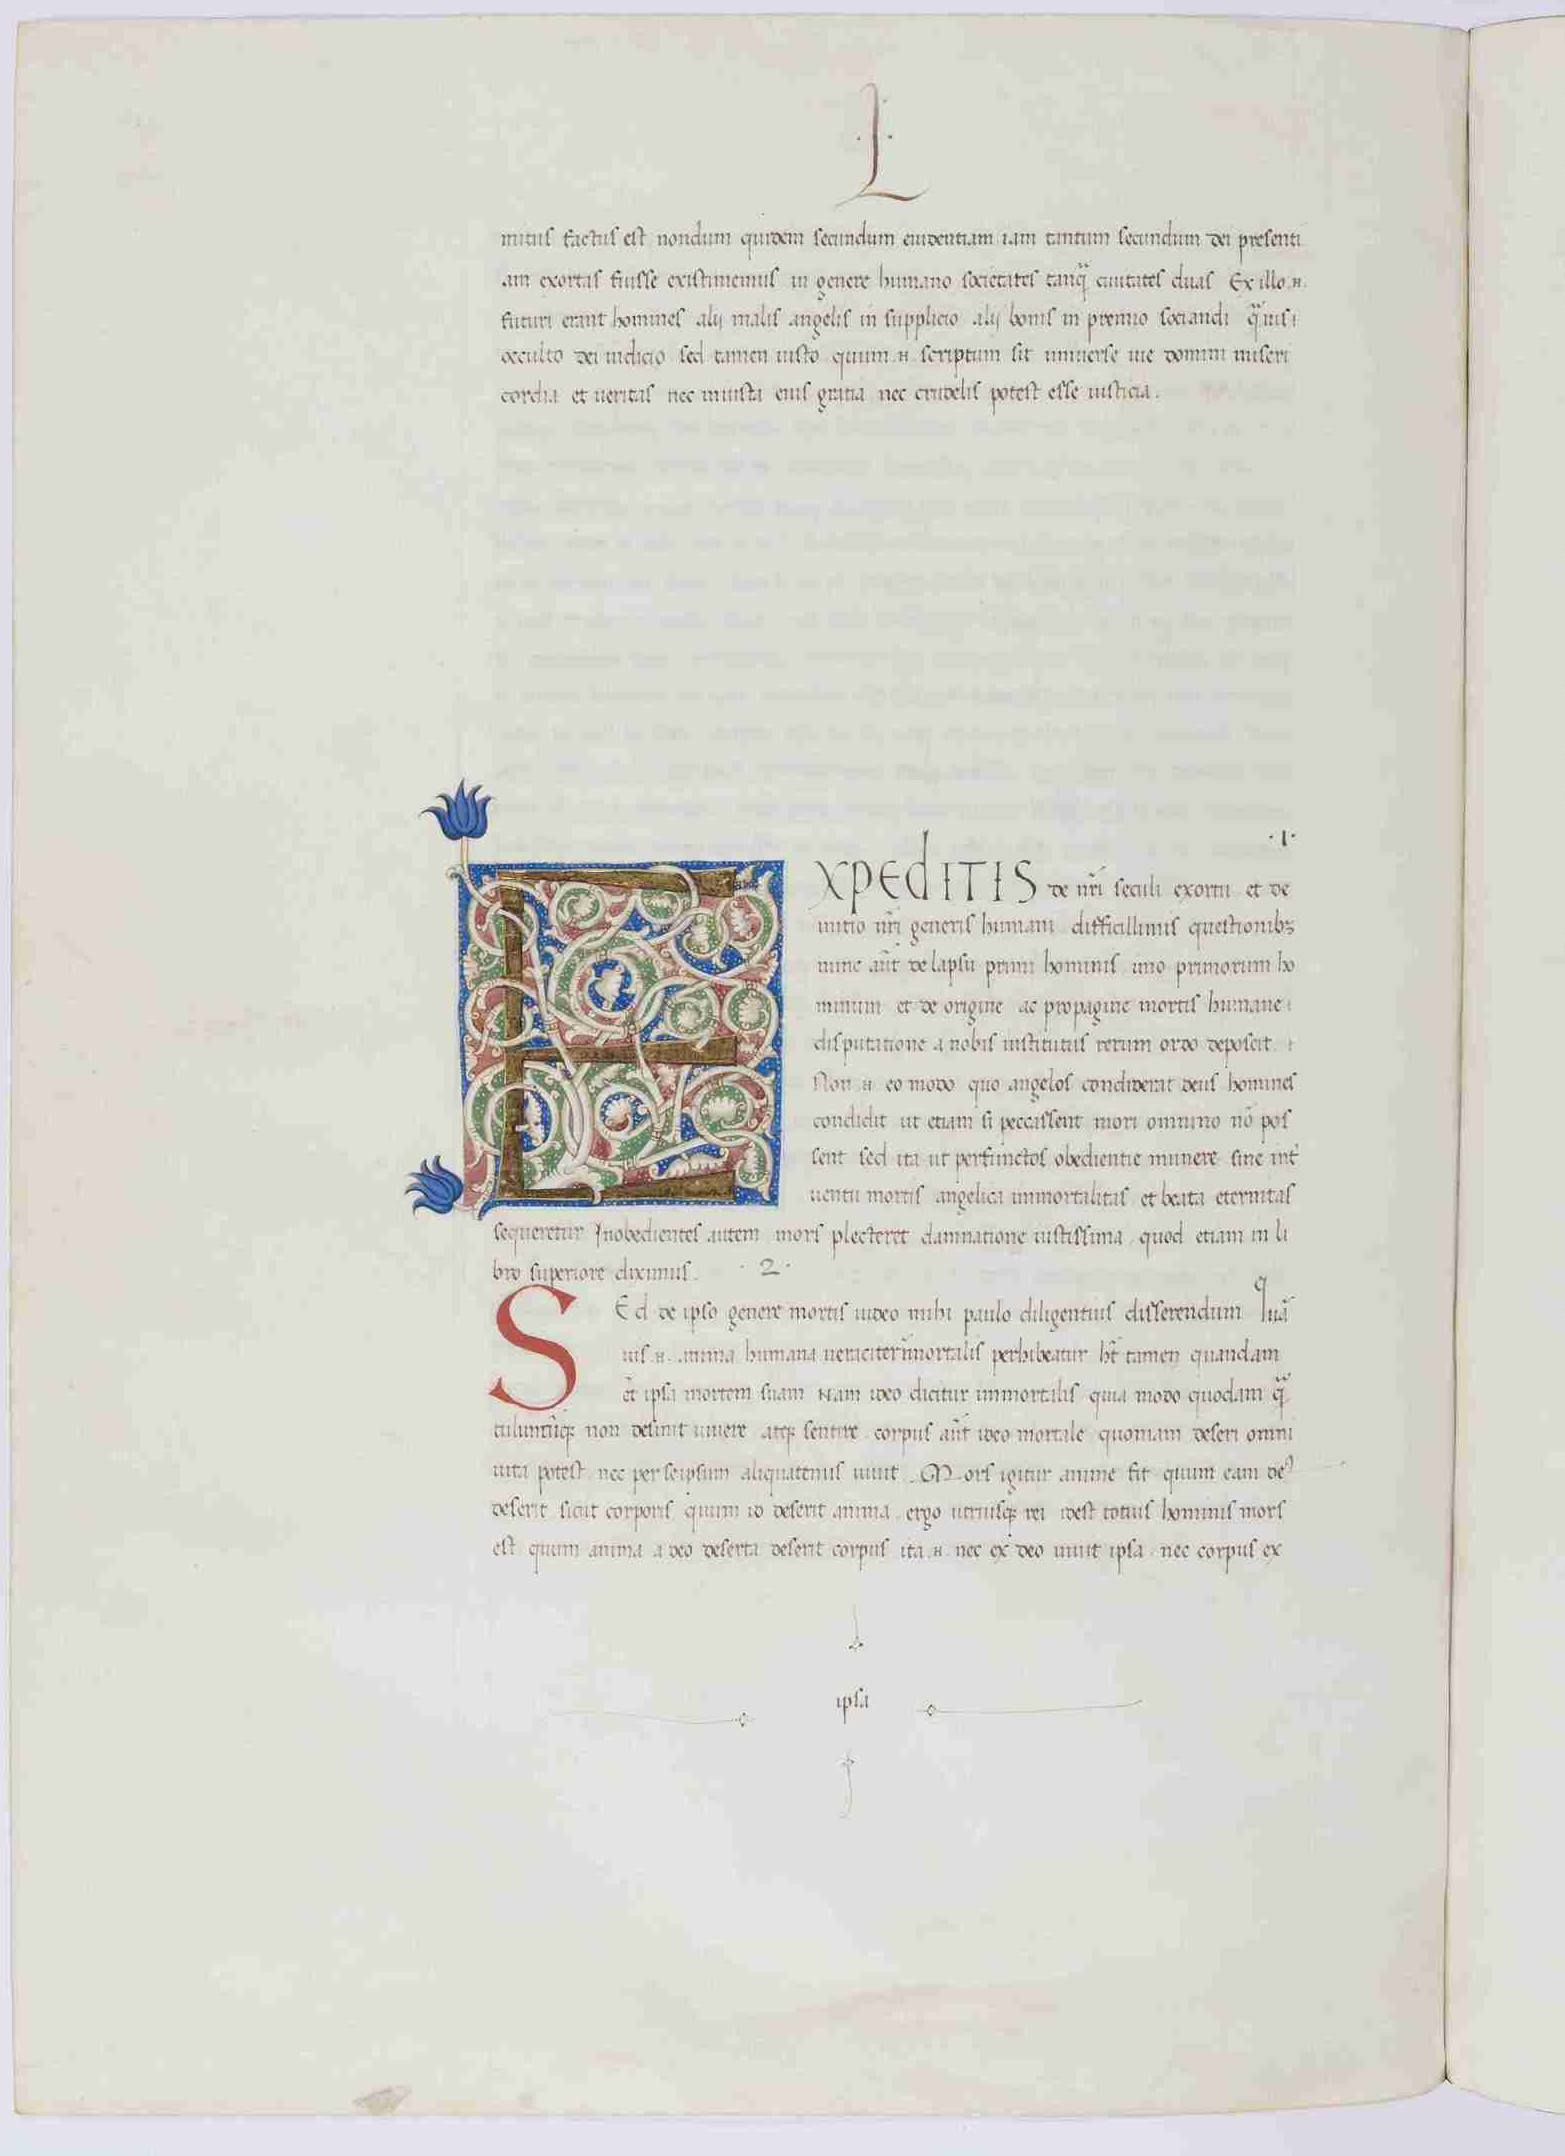 ·L·
mitus factus est nondum quidem secundum euidentiam iam tantum secundum dei presenti
am exortas fuisse existimemus in genere humano societates tanq̃ ciuitates duas Ex illo .n.
futuri erant homines alij malis angelis in supplicio alij bonis in premio sociandi q̃uis
occulto dei iudicio sed tamen iusto quum .n. scriptum sit uniuerse uie domini miseri
cordia et ueritas nec iniusta eius gratia nec crudelis potest esse iusticia.
·1·
EXPEdITIS de nr̃i seculi exortu et de
initio nr̃i generis humani difficillimis questionibꝫ
nunc aũt de lapsu primi hominis imo primorum ho
minum et de origine ac propagine mortis humane
disputatione a nobis institutus rerum ordo deposcit
Non .n. eo modo quo angelos condiderat deus homines
condidit ut etiam si peccassent mori omnino nõ pos
sent sed ita ut perfunctos obedientie munere sine int̃
uentu mortis angelica immortalitas et beata eternitas
sequeretur Inobedientes autem mors plecteret damnatione iustissima quod etiam in li
bro superiore diximus. ·2·
SEd de ipso genere mortis uideo mihi paulo diligentius disserendum Quã
uis .n. anima humana ueraciter immortalis perhibeatur ht̃ tamen quandam
et̃ ipsa mortem suam Nam ideo dicitur immortalis quia modo quodam q̃
tuluncũqꝫ non desinit uiuere atqꝫ sentire corpus aũt ideo mortale quoniam deseri omni
uita potest nec per seipsum aliquatenus uiuit Mors igitur anime fit quum eam deꝰ
deserit sicut corporis quum id deserit anima ergo utriusqꝫ rei idest totius hominis mors
est quum anima a deo deserta deserit corpus ita .n. nec ex deo uiuit ipsa nec corpus ex
ipsa